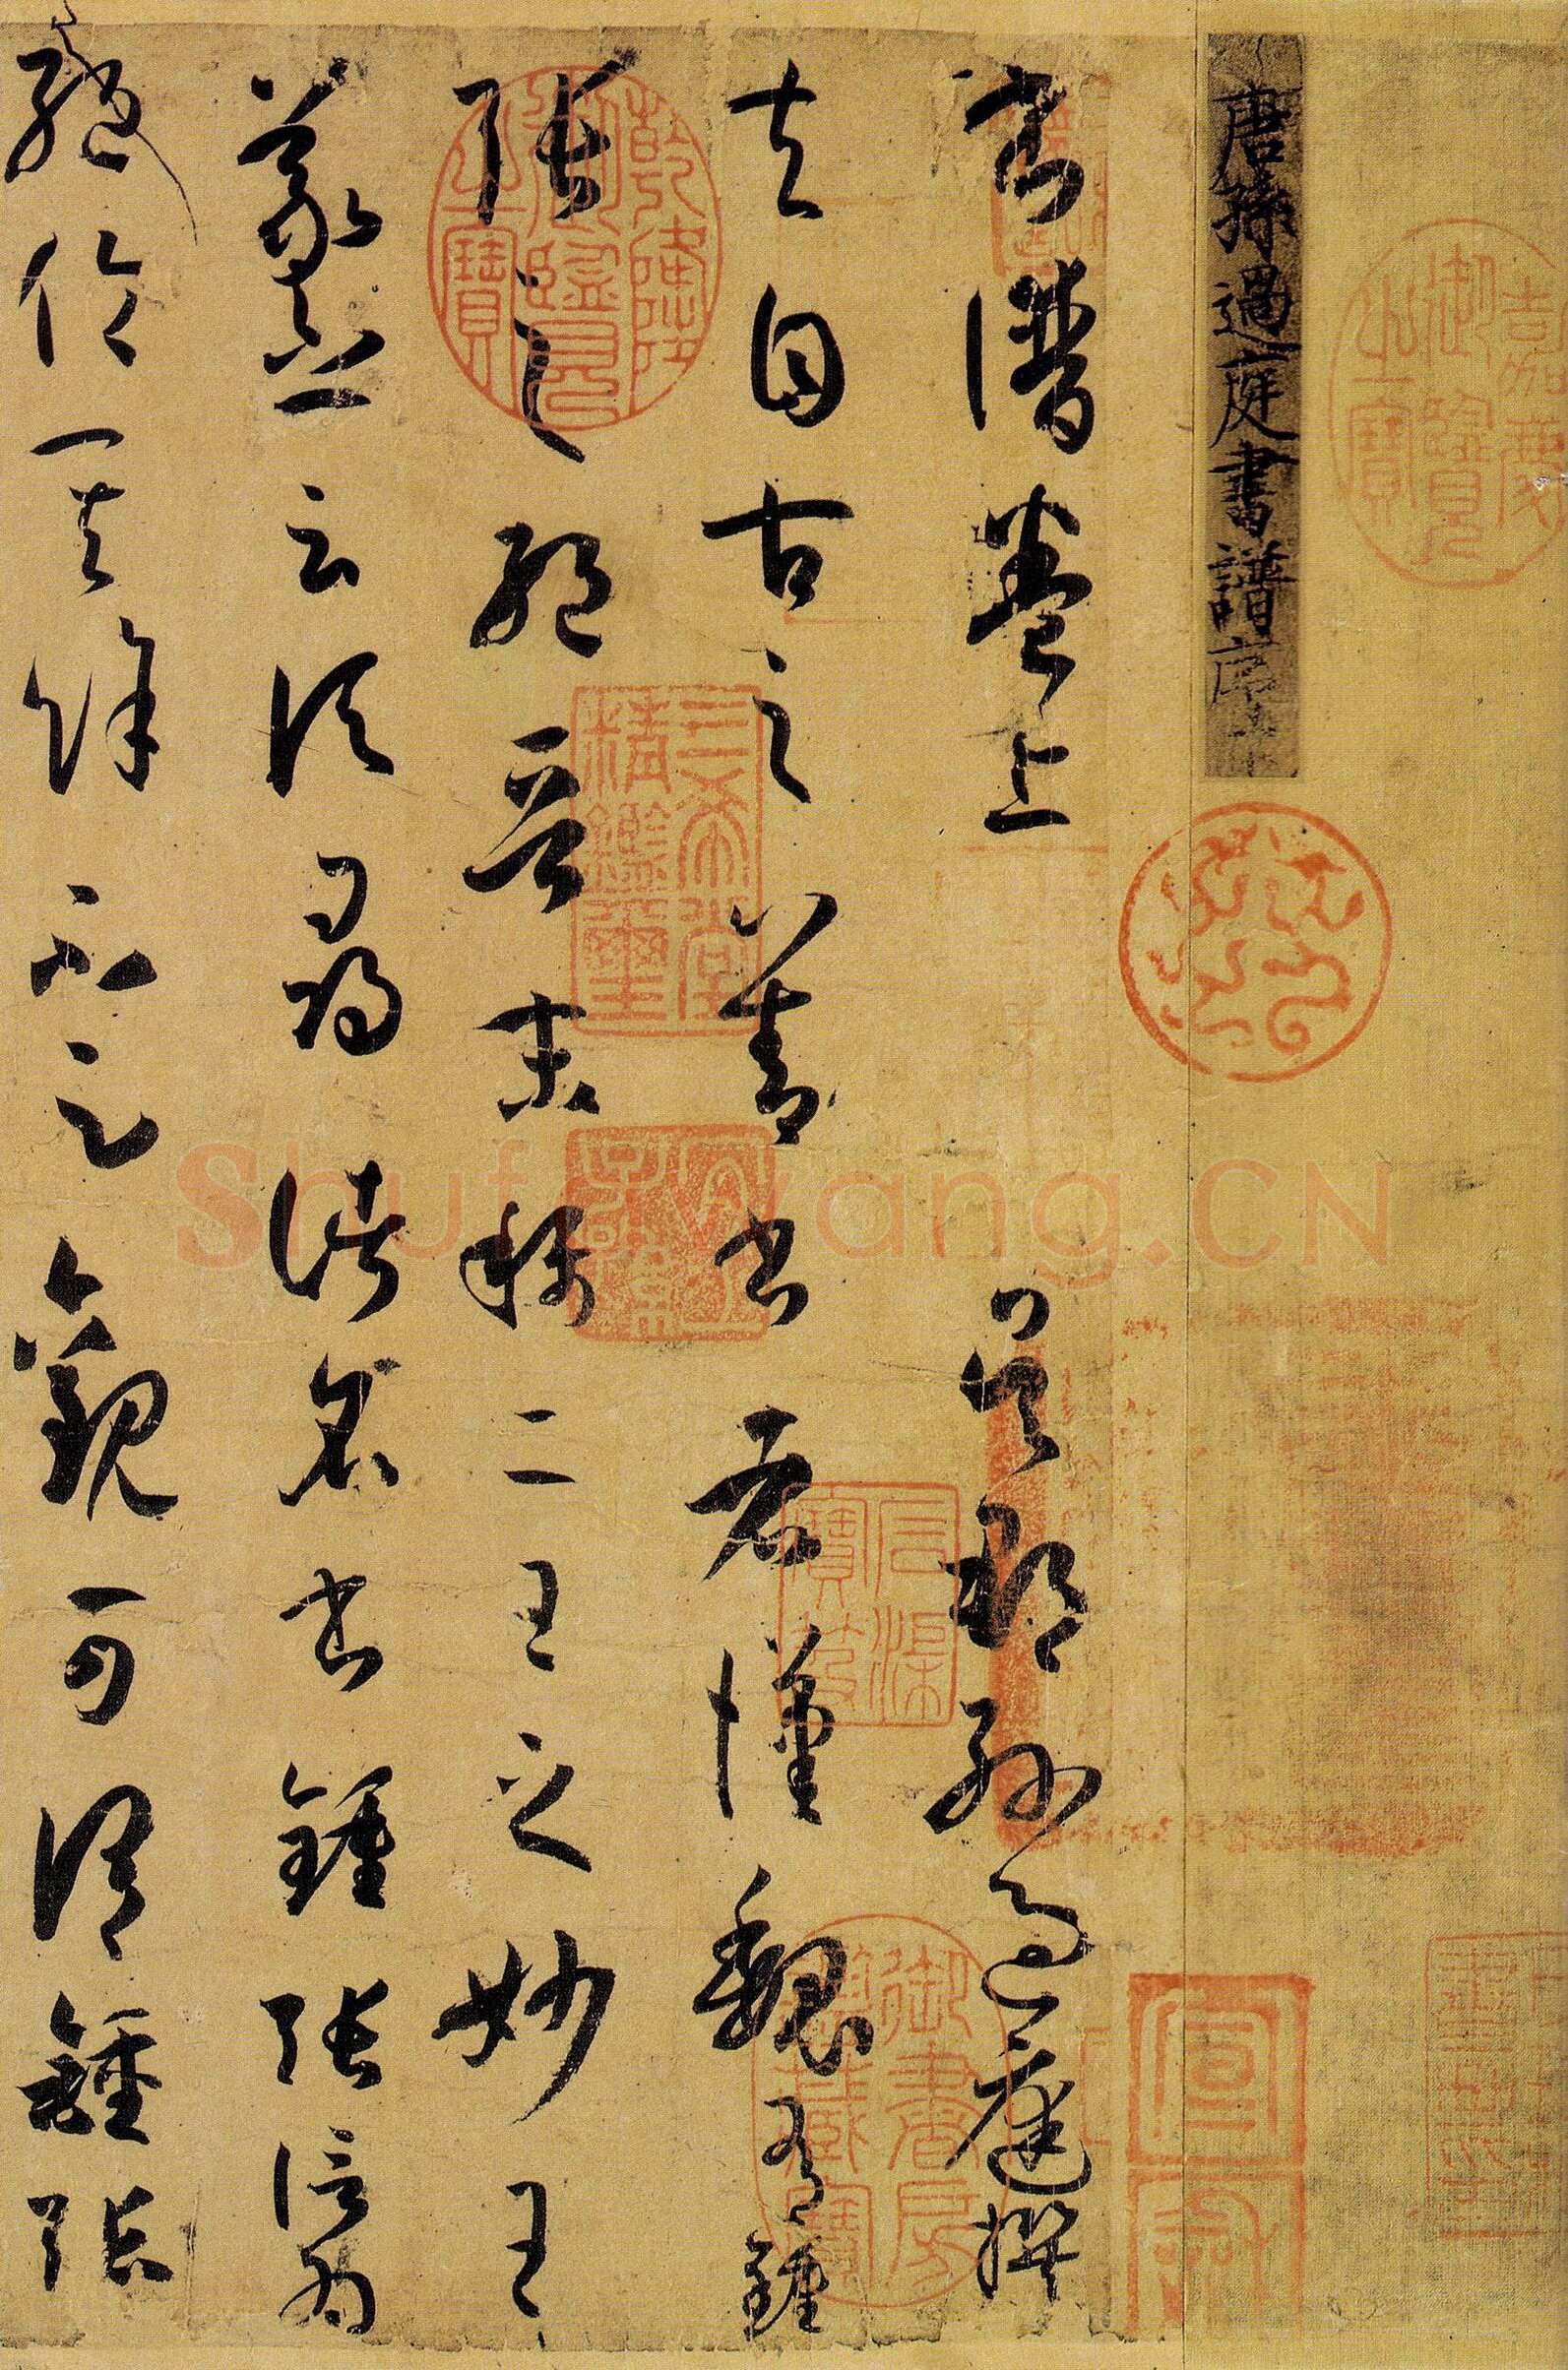 嘉慶御覽之寶
唐孫過庭書譜序
書譜卷上 吳郡孫過庭撰
夫自古之善書者漢魏有鍾
張之絕晉末稱二王之妙王
羲之云頃尋諸名書鍾張信為
絕倫其餘不足觀可謂鍾張
乾隆御覽之寶
三希堂精鑑璽
宜子孫
石渠寶笈
御書房鑑藏寶
宣和
ShufaWang.CN